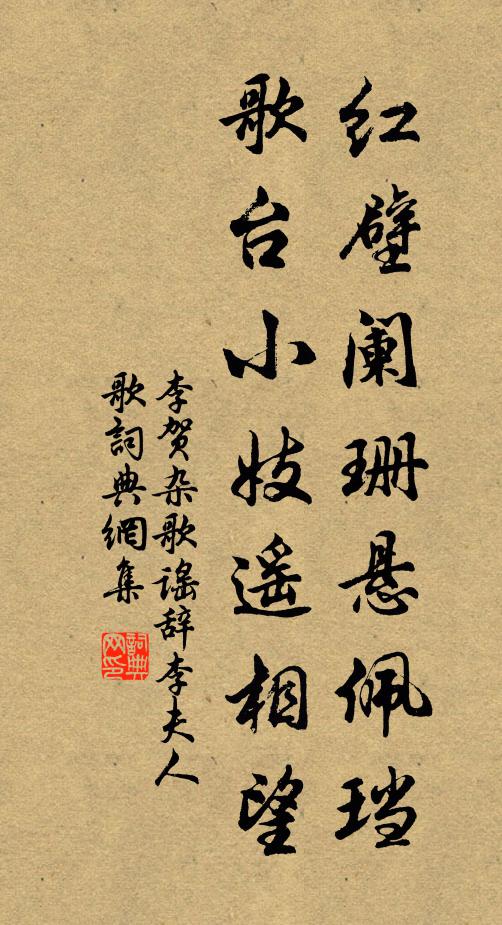 红壁阑珊悬佩珰
歌台小妓遥相望
李贺杂歌谣辞李夫人
歌词典網集
詞典网印